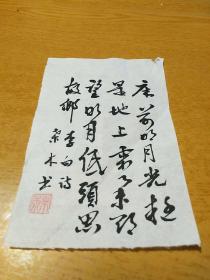 床前明月光疑
是地上霜举头
望明月低頭思
故鄉 李白诗
木书